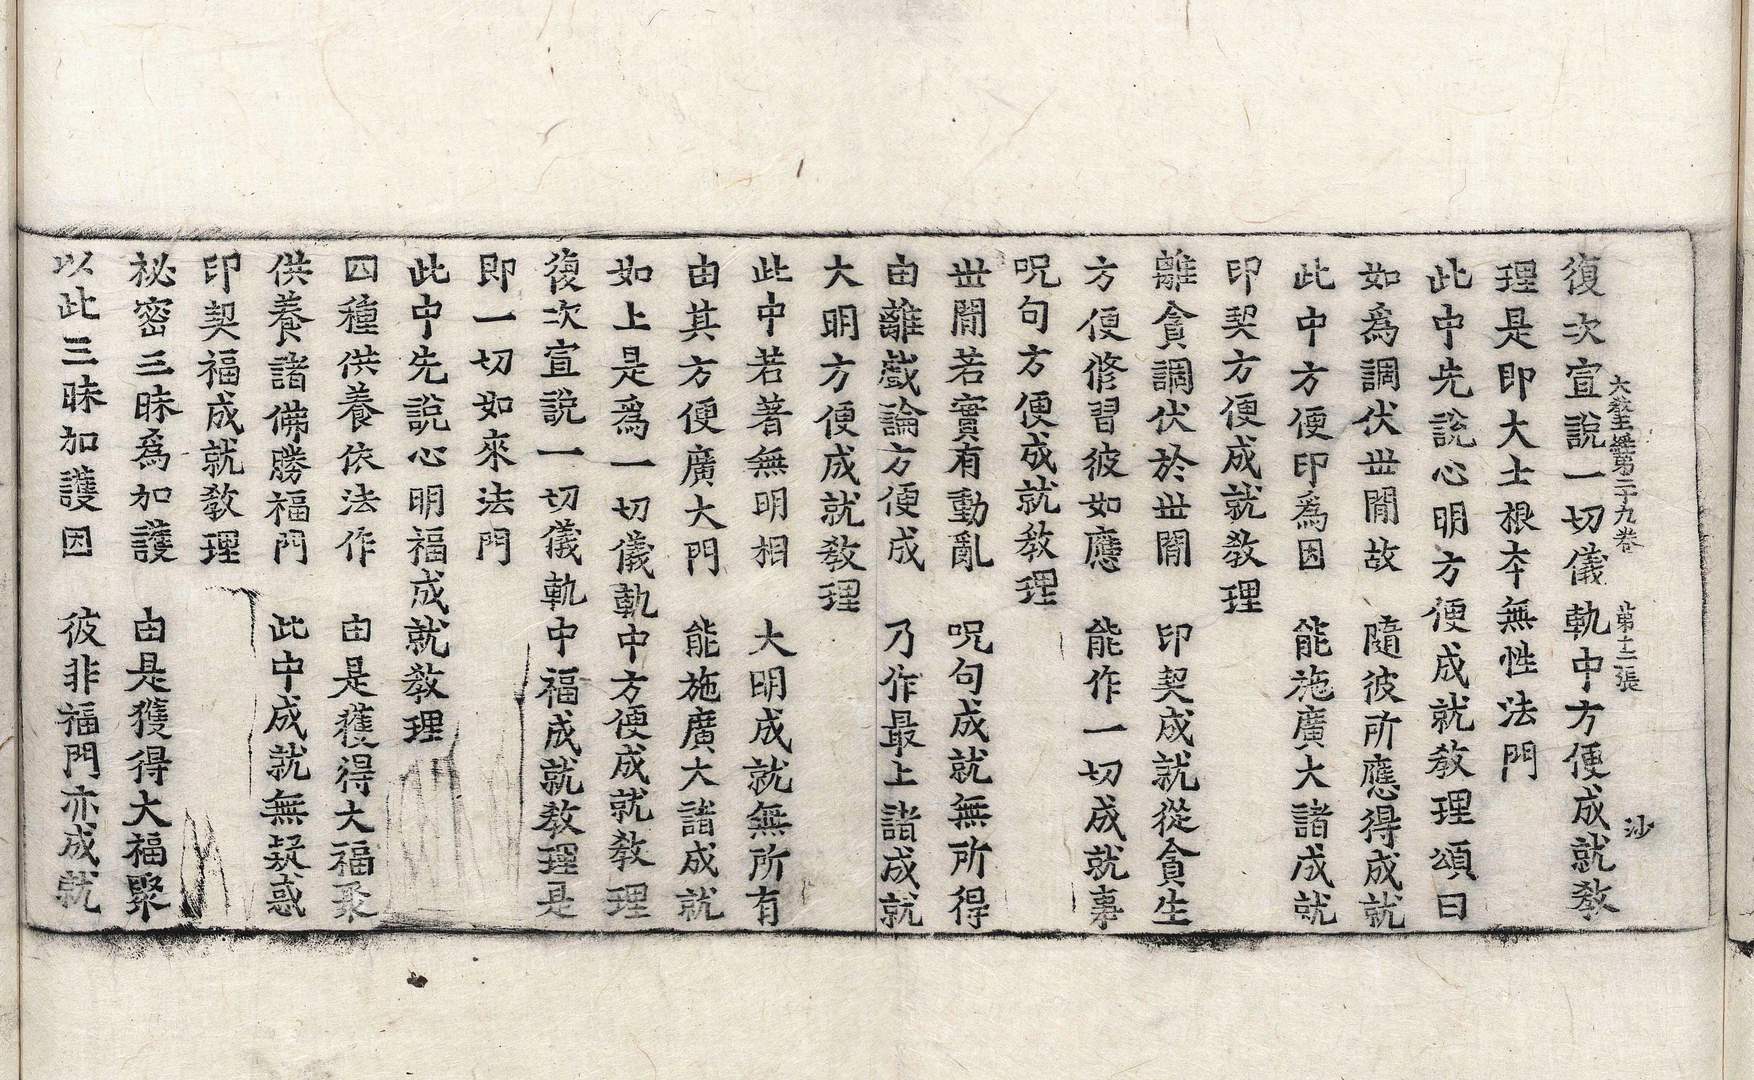 復次宣說一切儀軌中方便成就敎
大敎王經第二十九卷 第十二張 沙
理是即大士根本無性法門
此中先說心明方便成就敎理頌曰
如爲調伏世閒故 隨彼所應得成就
此中方便印爲因 能施廣大諸成就
印契方便成就敎理
離貪調伏於世閒 印契成就從貪生
方便修習彼如應 能作一切成就事
呪句方便成就敎理
世閒若實有動亂 呪句成就無所得
由離戲論方便成 乃作最上諸成就
大明方便成就敎理
此中若著無明相 大明成就無所有
由其方便廣大門 能施廣大諸成就
如上是爲一切儀軌中方便成就敎理
復次宣說一切儀軌中福成就敎理是
即一切如來法門
此中先說心明福成就敎理
四種供養依法作 由是獲得大福聚
供養諸佛勝福門 此中成就無疑惑
印契福成就敎理
祕密三昧爲加護 由是獲得大福聚
以此三昧加護因 彼非福門亦成就